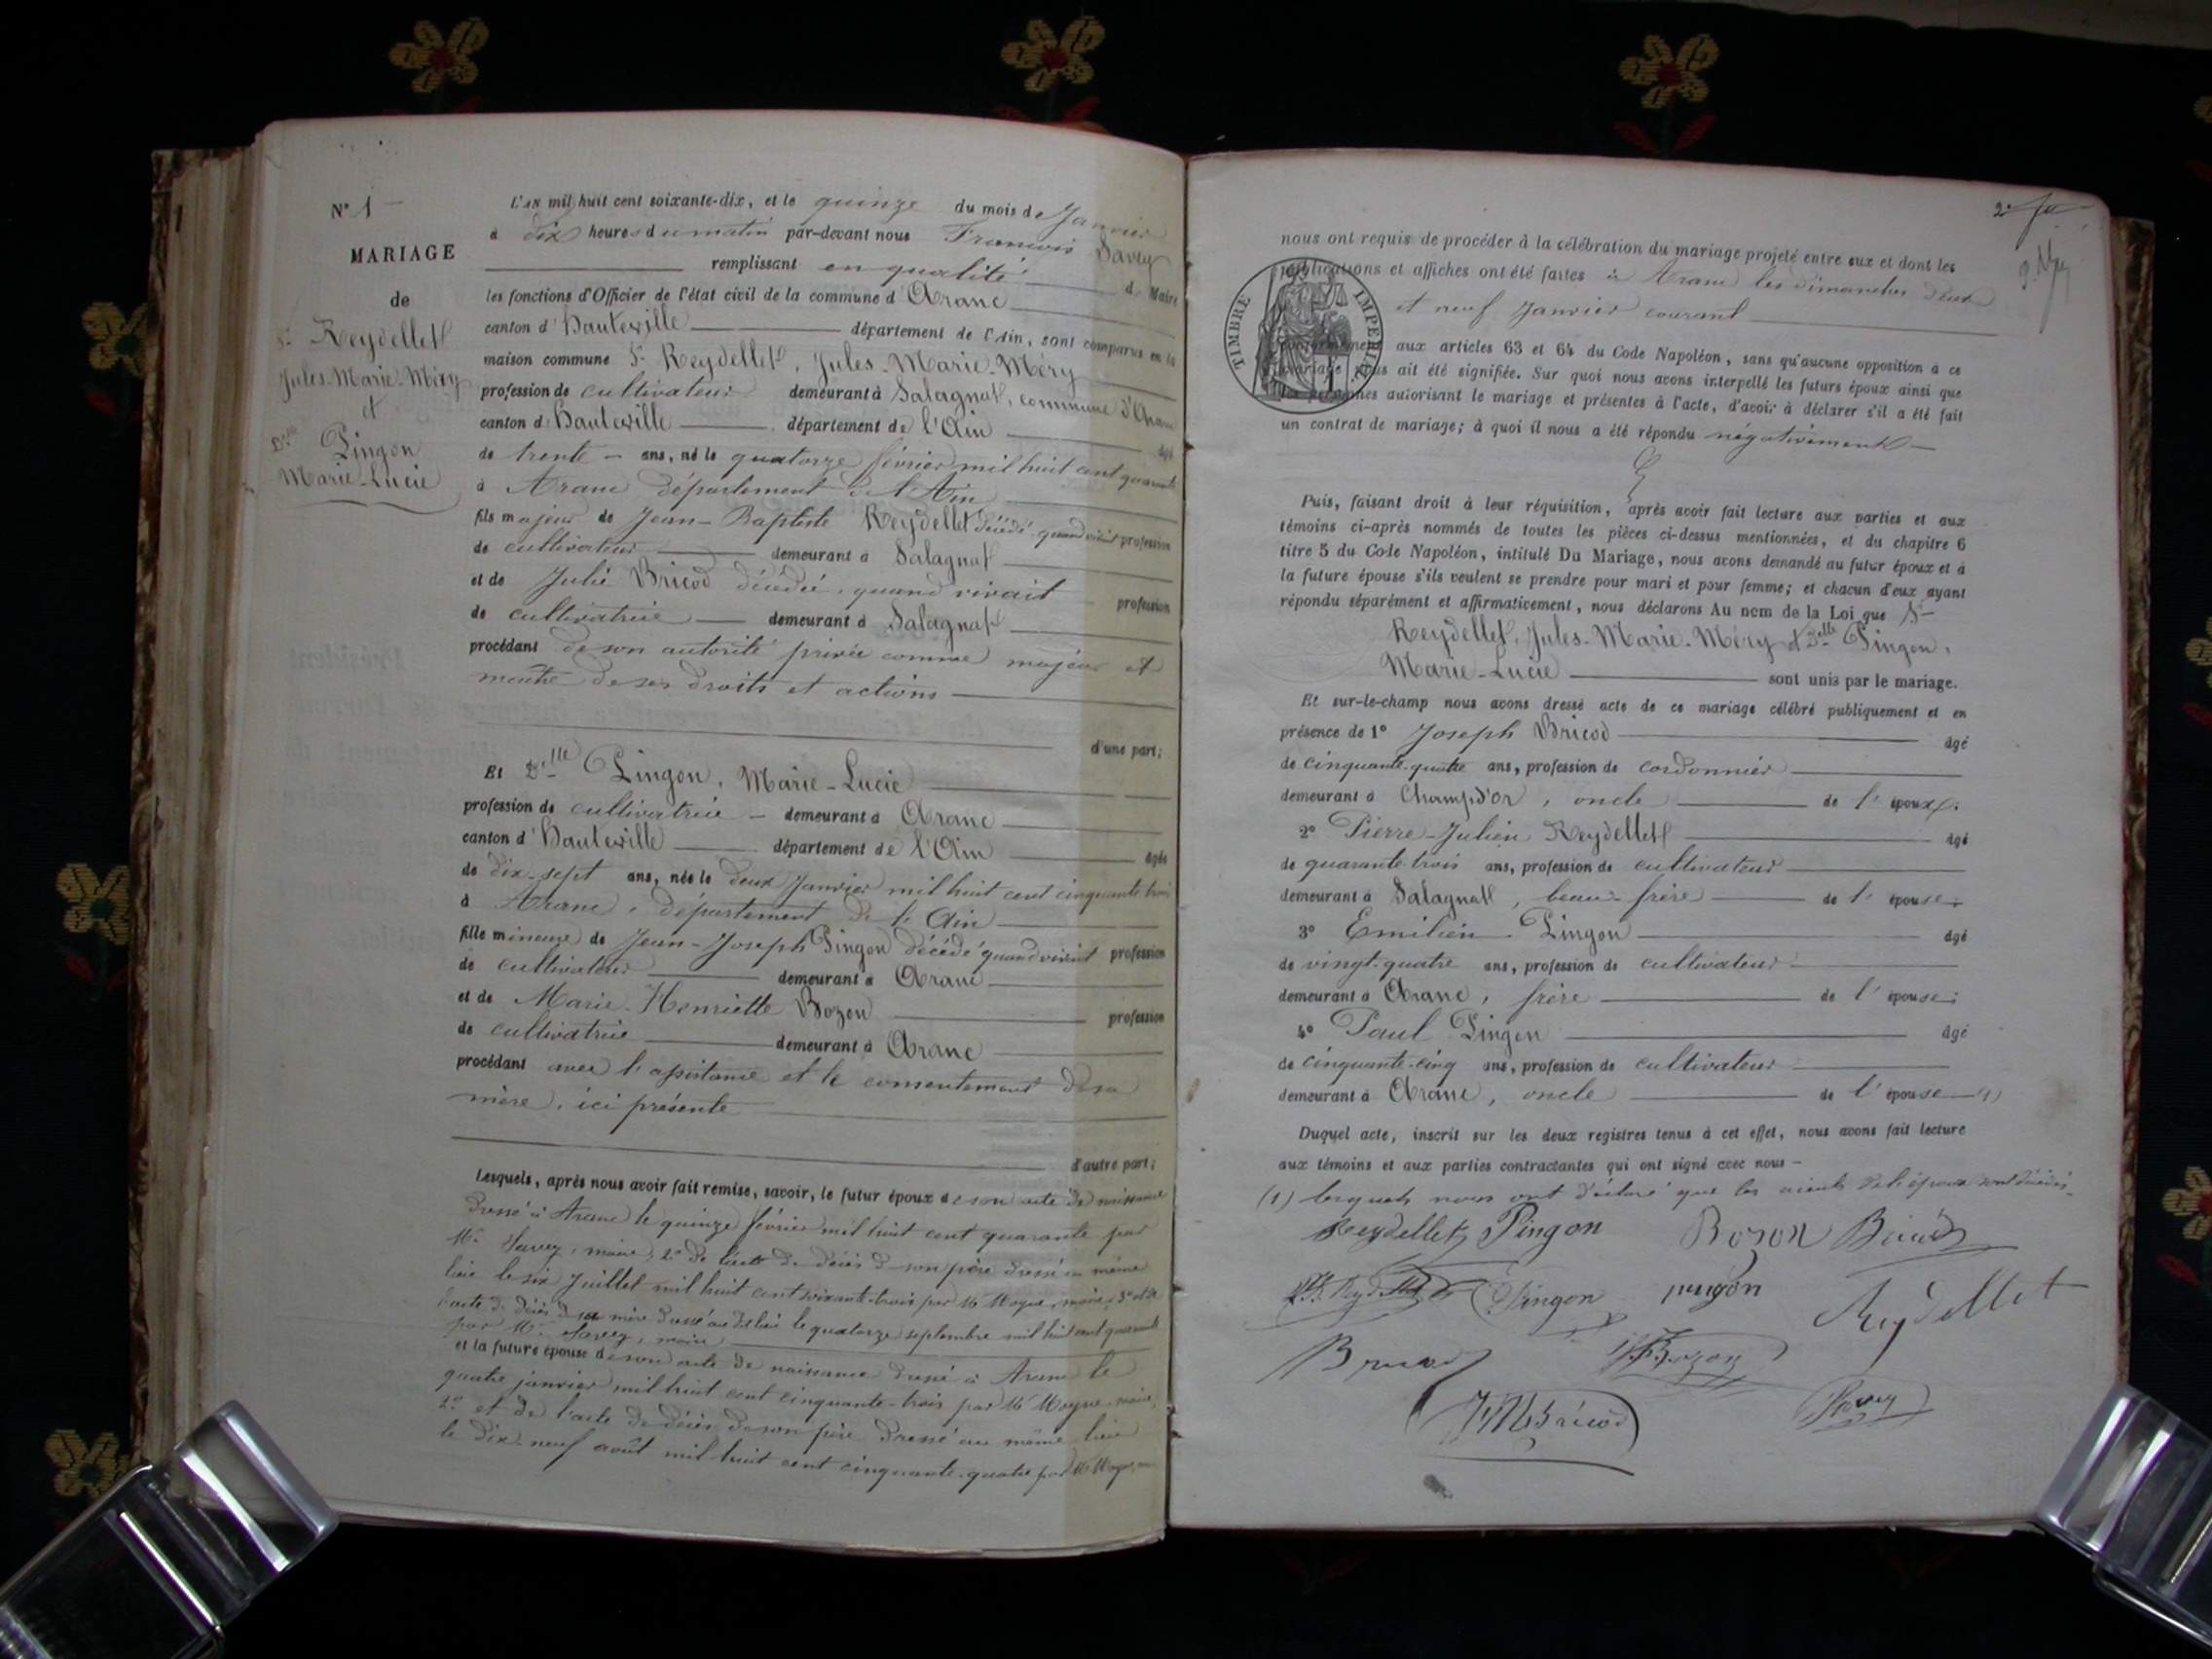 N° 1
MARIAGE
de
Sr Reydellet
Jules-Marie-Méry
et
Dlle Pingon
Marie-Lucie
L'AN mil huit cent soixante-dix, et le quinze du mois de Janvier
à dix heures du matin par-devant nous François Savey
remplissant en qualité de Maire
les fonctions d'Officier de l'état civil de la commune d'Aranc
canton d'Hauteville département de l'Ain, sont comparus en la
maison commune Sr Reydellet, Jules-Marie-Méry
profession de cultivateur demeurant à Salagnat, commune d'Aranc
canton d'Hauteville département de l'Ain âgé
de trente ans, né le quatorze février mil huit cent quarante
à Aranc département de l'Ain
fils majeur de Jean-Baptiste Reydellet décédé quand vivait profession
de cultivateur demeurant à Salagnat
et de Julie Bricod décédée, quand vivait profession
de cultivatrice demeurant à Salagnat
procédant de son autorité privée comme majeur et
maître de ses droits et actions
d'une part;
Et Delle Pingon, Marie-Lucie
profession de cultivatrice demeurant à Aranc
canton d'Hauteville département de l'Ain âgée
de dix-sept ans, née le deux Janvier mil huit cent cinquante trois
à Aranc, département de l'Ain
fille mineure de Jean-Joseph Pingon décédé quand vivait profession
de cultivateur demeurant à Aranc
et de Marie-Henriette Bozon profession
de cultivatrice demeurant à Aranc
procédant avec l'assistance et le consentement de sa
mère, ici présente
d'autre part;
Lesquels, après nous avoir fait remise, savoir, le futur époux de son acte de naissance
dressé à Aranc le quinze février mil huit cent quarante par
Mr Savey, maire, 2° de l'acte de décès de son père dressé au même
lieu le six Juillet mil huit cent soixante-trois par Mr Moyne, maire, 3° et de
l'acte de décès de sa mère dressé au dit lieu le quatorze septembre mil huit cent quarante
par Mr Savey, maire
et la future épouse de son acte de naissance dressé à Aranc le
quatre janvier mil huit cent cinquante-trois par Mr Moyne, maire,
2° et de l'acte de décès de son père dressé au même lieu
le dix-neuf août mil huit cent cinquante-quatre par Mr Moyne,
2e
nous ont requis de procéder à la célébration du mariage projeté entre eux et dont les
publications et affiches ont été faites à Aranc les dimanches deux
et neuf Janvier courant
TIMBRE IMPERIAL
conformément aux articles 63 et 64 du Code Napoléon, sans qu'aucune opposition à ce
mariage nous ait été signifiée. Sur quoi nous avons interpellé les futurs époux ainsi que
les personnes autorisant le mariage et présentes à l'acte, d'avoir à déclarer s'il a été fait
un contrat de mariage; à quoi il nous a été répondu négativement
Puis, faisant droit à leur réquisition, après avoir fait lecture aux parties et aux
témoins ci-après nommés de toutes les pièces ci-dessus mentionnées, et du chapitre 6
titre 5 du Code Napoléon, intitulé Du Mariage, nous avons demandé au futur époux et à
la future épouse s'ils veulent se prendre pour mari et pour femme; et chacun d'eux ayant
répondu séparément et affirmativement, nous déclarons Au nom de la Loi que Sr
Reydellet, Jules-Marie-Méry et Delle Pingon,
Marie-Lucie sont unis par le mariage.
Et sur-le-champ nous avons dressé acte de ce mariage célébré publiquement et en
présence de 1° Joseph Bricod âgé
de cinquante-quatre ans, profession de cordonnier
demeurant à Champd'or, oncle de l'époux;
2° Pierre-Julien Reydellet âgé
de quarante-trois ans, profession de cultivateur
demeurant à Salagnat, beau-frère de l'épouse;
3° Emilien Pingon âgé
de vingt-quatre ans, profession de cultivateur
demeurant à Aranc, frère de l'épouse;
4° Paul Pingon âgé
de cinquante-cinq ans, profession de cultivateur
demeurant à Aranc, oncle de l'épouse (1)
Duquel acte, inscrit sur les deux registres tenus à cet effet, nous avons fait lecture
aux témoins et aux parties contractantes qui ont signé avec nous
(1) lesquels nous ont déclaré que les aïeuls de l'époux sont décédés
Reydellet Pingon Bozon Bricod
Pingon pingon Reydellet
Bricod Bozon
JMBricod Savey